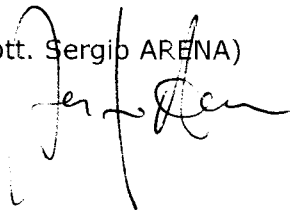 ott. Sergio ARENA)